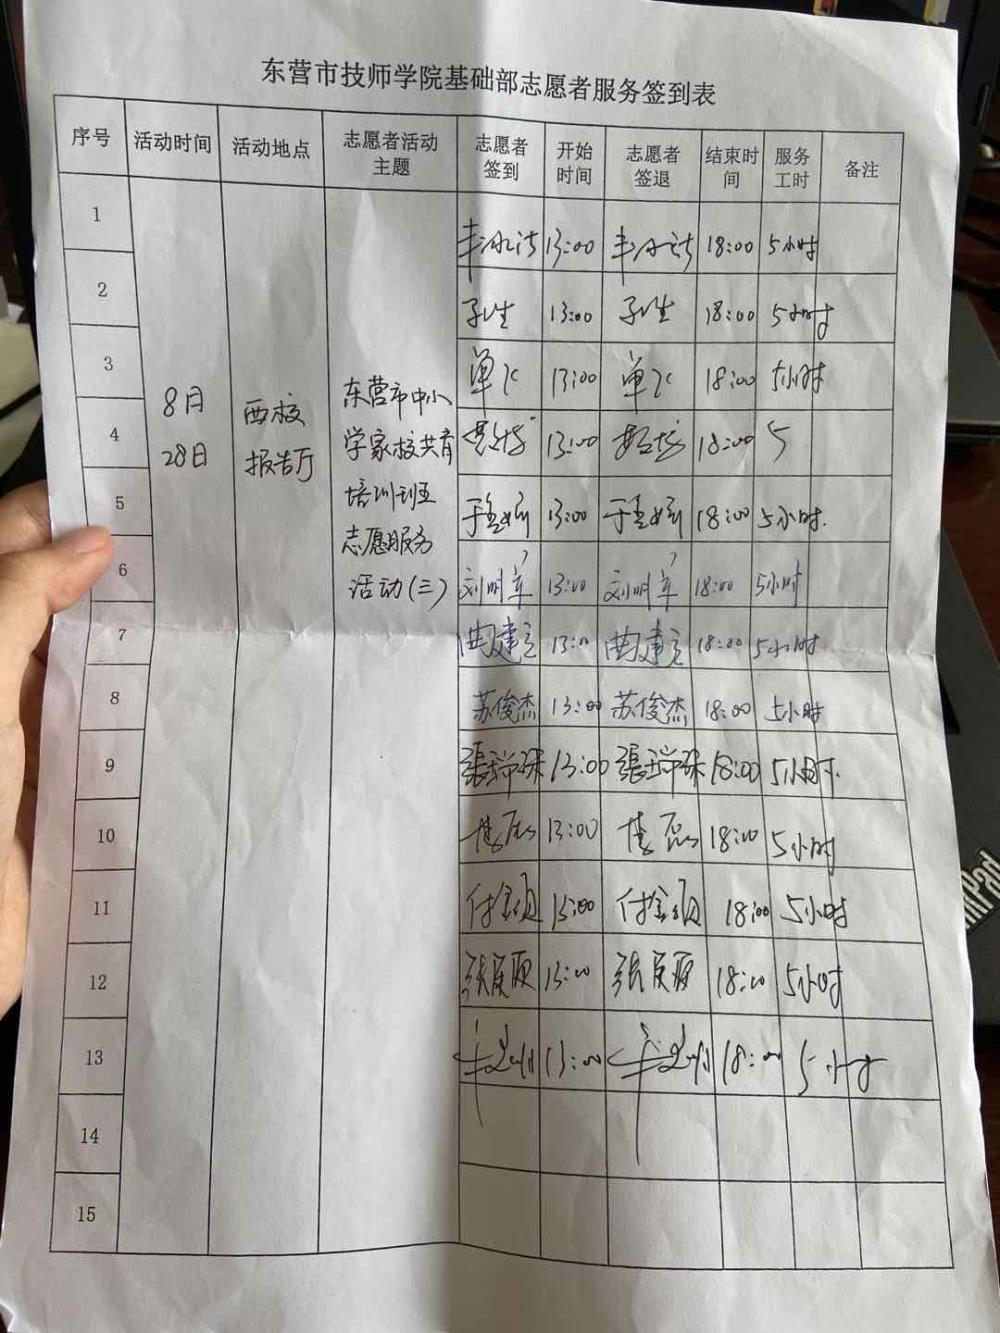 东营市技师学院基础部志愿者服务签到表
序号 活动时间 活动地点 志愿者活动主题 志愿者签到 开始时间 志愿者签退 结束时间 服务工时 备注
8月28日
西校报告厅
东营市中小
学家校共育
培训班
志愿服务
活动(三)
1 13:00 18:00 5小时
2 13:00 18:00 5小时
3 13:00 18:00 5小时
4 13:00 18:00 5
5 13:00 18:00 5小时.
6 刘明军 13:00 刘明军 18:00 5小时
7 曲建立 13:00 曲建立 18:00 5小时
8 苏俊杰 13:00 苏俊杰 18:00 5小时
9 13:00 18:00 5小时
10 13:00 18:00 5小时
11 13:00 18:00 5小时
12 13:00 18:00 5小时
13 13:00 18:00 5小时
14
15
ThinkPad